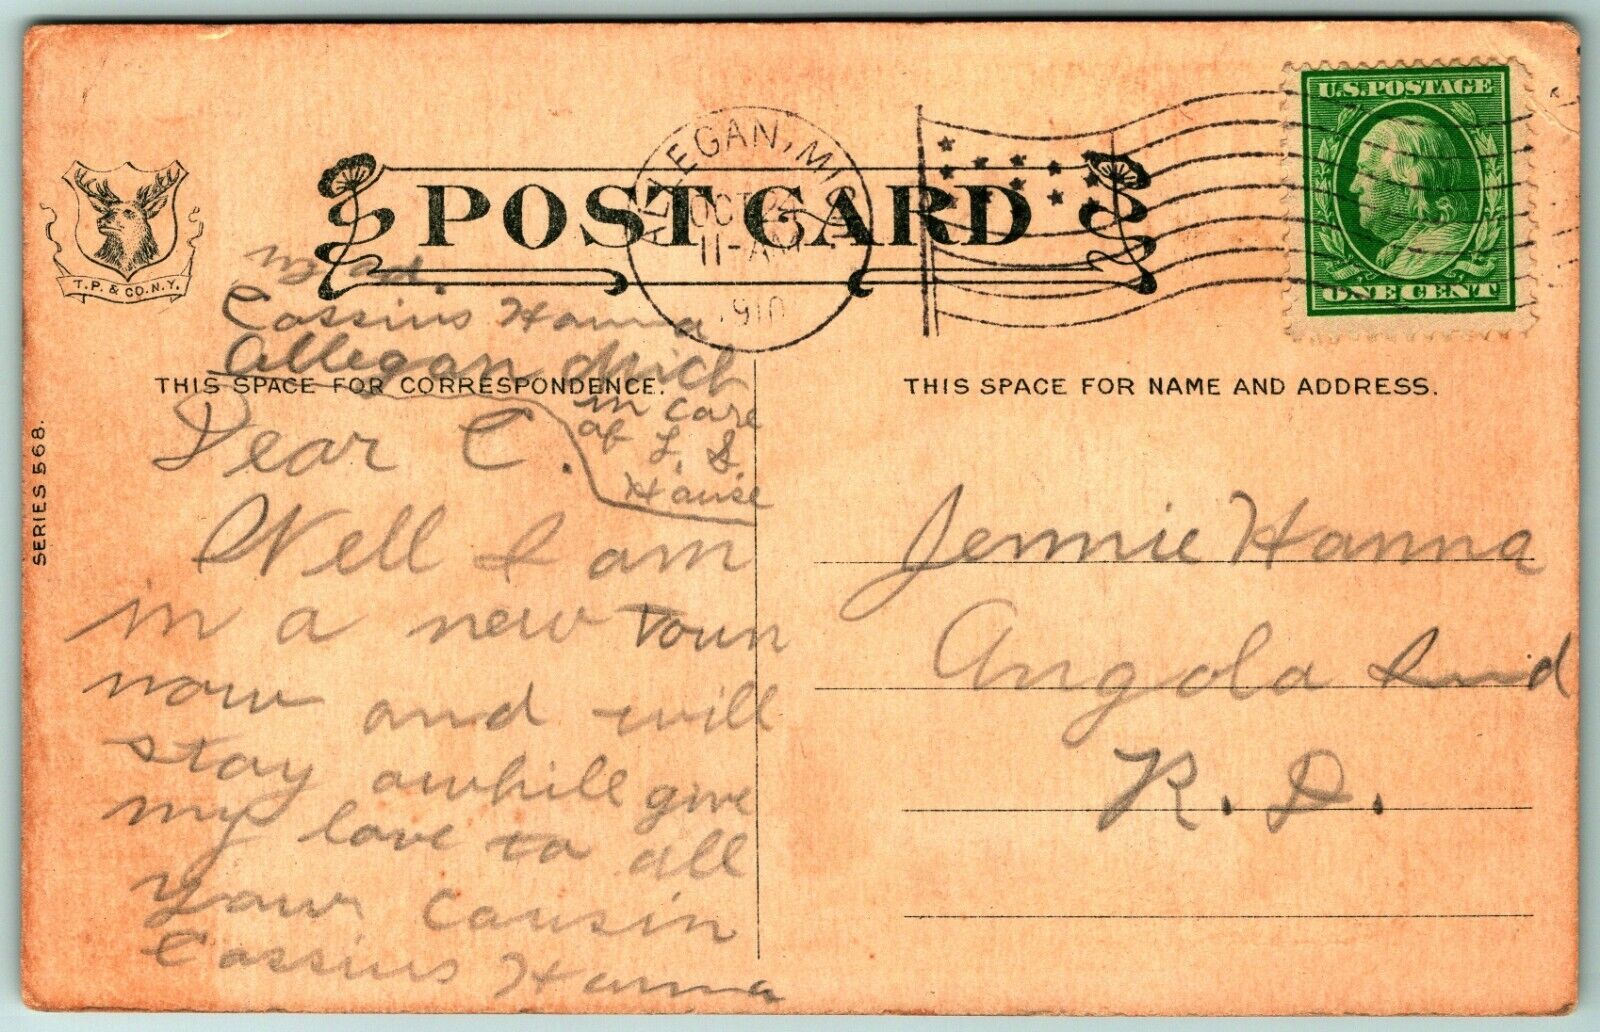 U.S.POSTAGE
ONE CENT
ALLEGAN, MICH
OCT 24
11-AM
1910
POST CARD
T. P. & CO. N.Y.
SERIES 568.
ad.
Cassius Hanna
Allegan Mich
in care
of L. S.
House
THIS SPACE FOR CORRESPONDENCE.
Dear C.
Well I am
in a new Town
now and will
stay awhill give
my love to all
your Cousin
Cassius Hanna
THIS SPACE FOR NAME AND ADDRESS.
Jennie Hanna
Angola Ind
R. D.